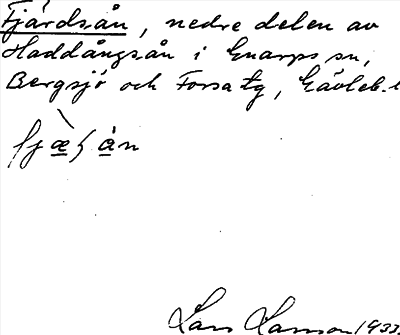 Fjärdsån, nedre delen av
Haddångsån i Gnarps sn,
Bergsjö och Forsa tg, Gävleb.l
fjæ̲ʃ å̲n
Lars Hanson 1933.